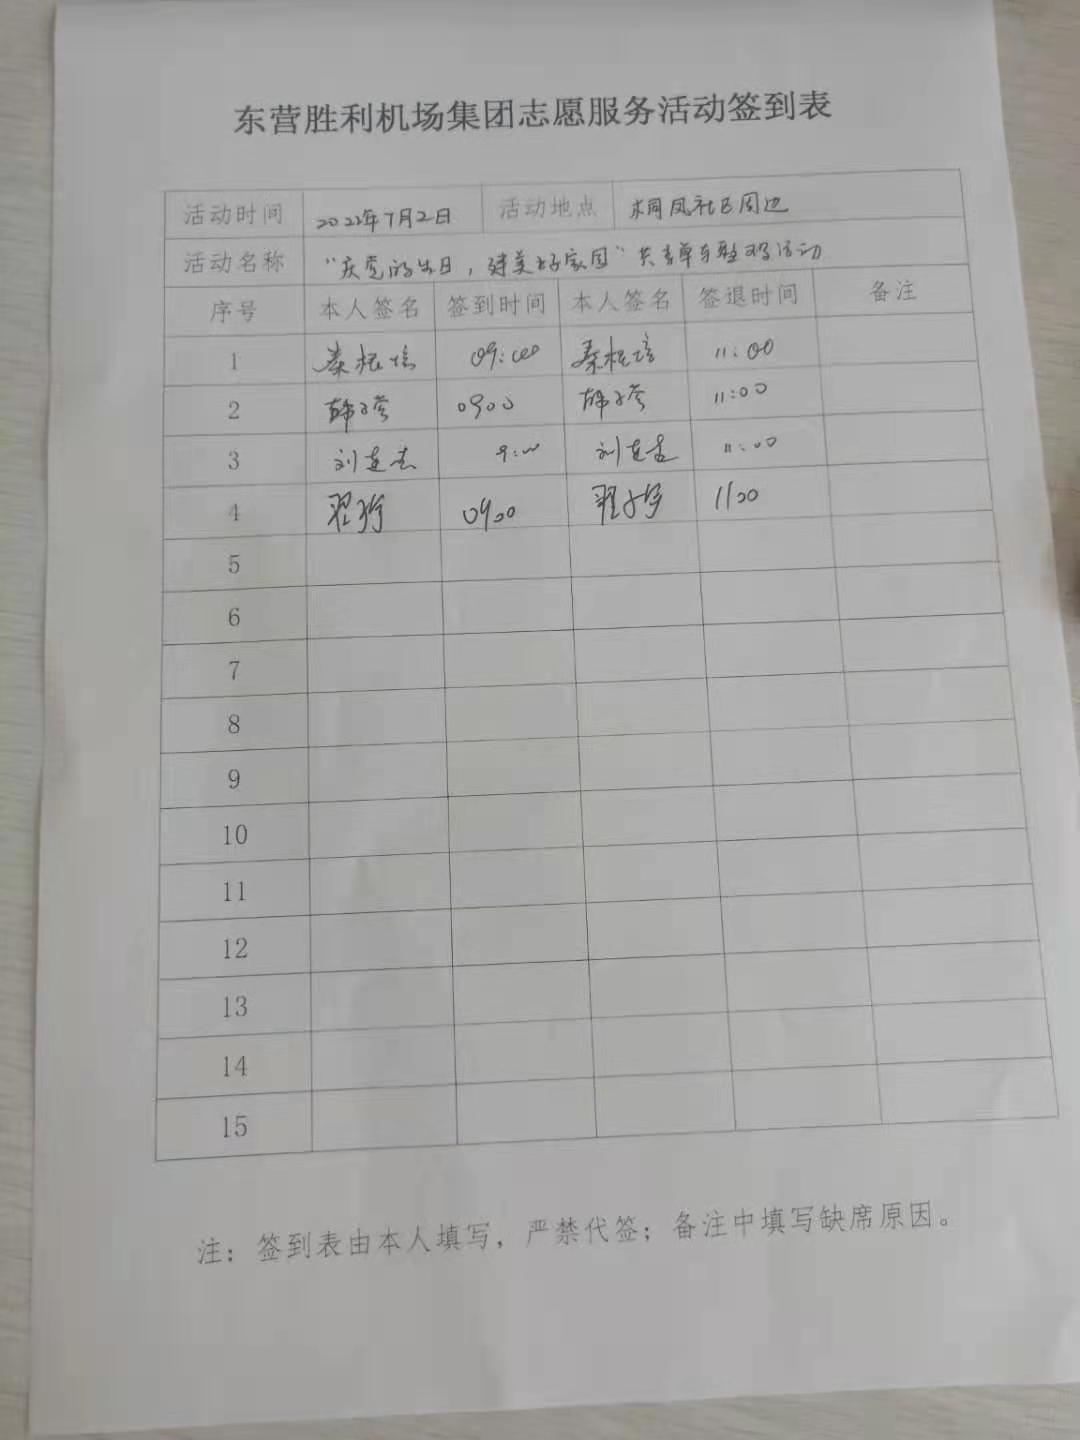 东营胜利机场集团志愿服务活动签到表
活动时间 2022年7月2日 活动地点 桐凤社区周边
活动名称 "庆党的生日,建美好家园"共享单车整理活动
序号 本人签名 签到时间 本人签名 签退时间 备注
1 秦根培 09:00 秦根培 11:00
2 韩 0900 韩 11:00
3 刘 9:00 刘 11:00
4 翟 0900 翟 1100
5
6
7
8
9
10
11
12
13
14
15
注：签到表由本人填写，严禁代签；备注中填写缺席原因。